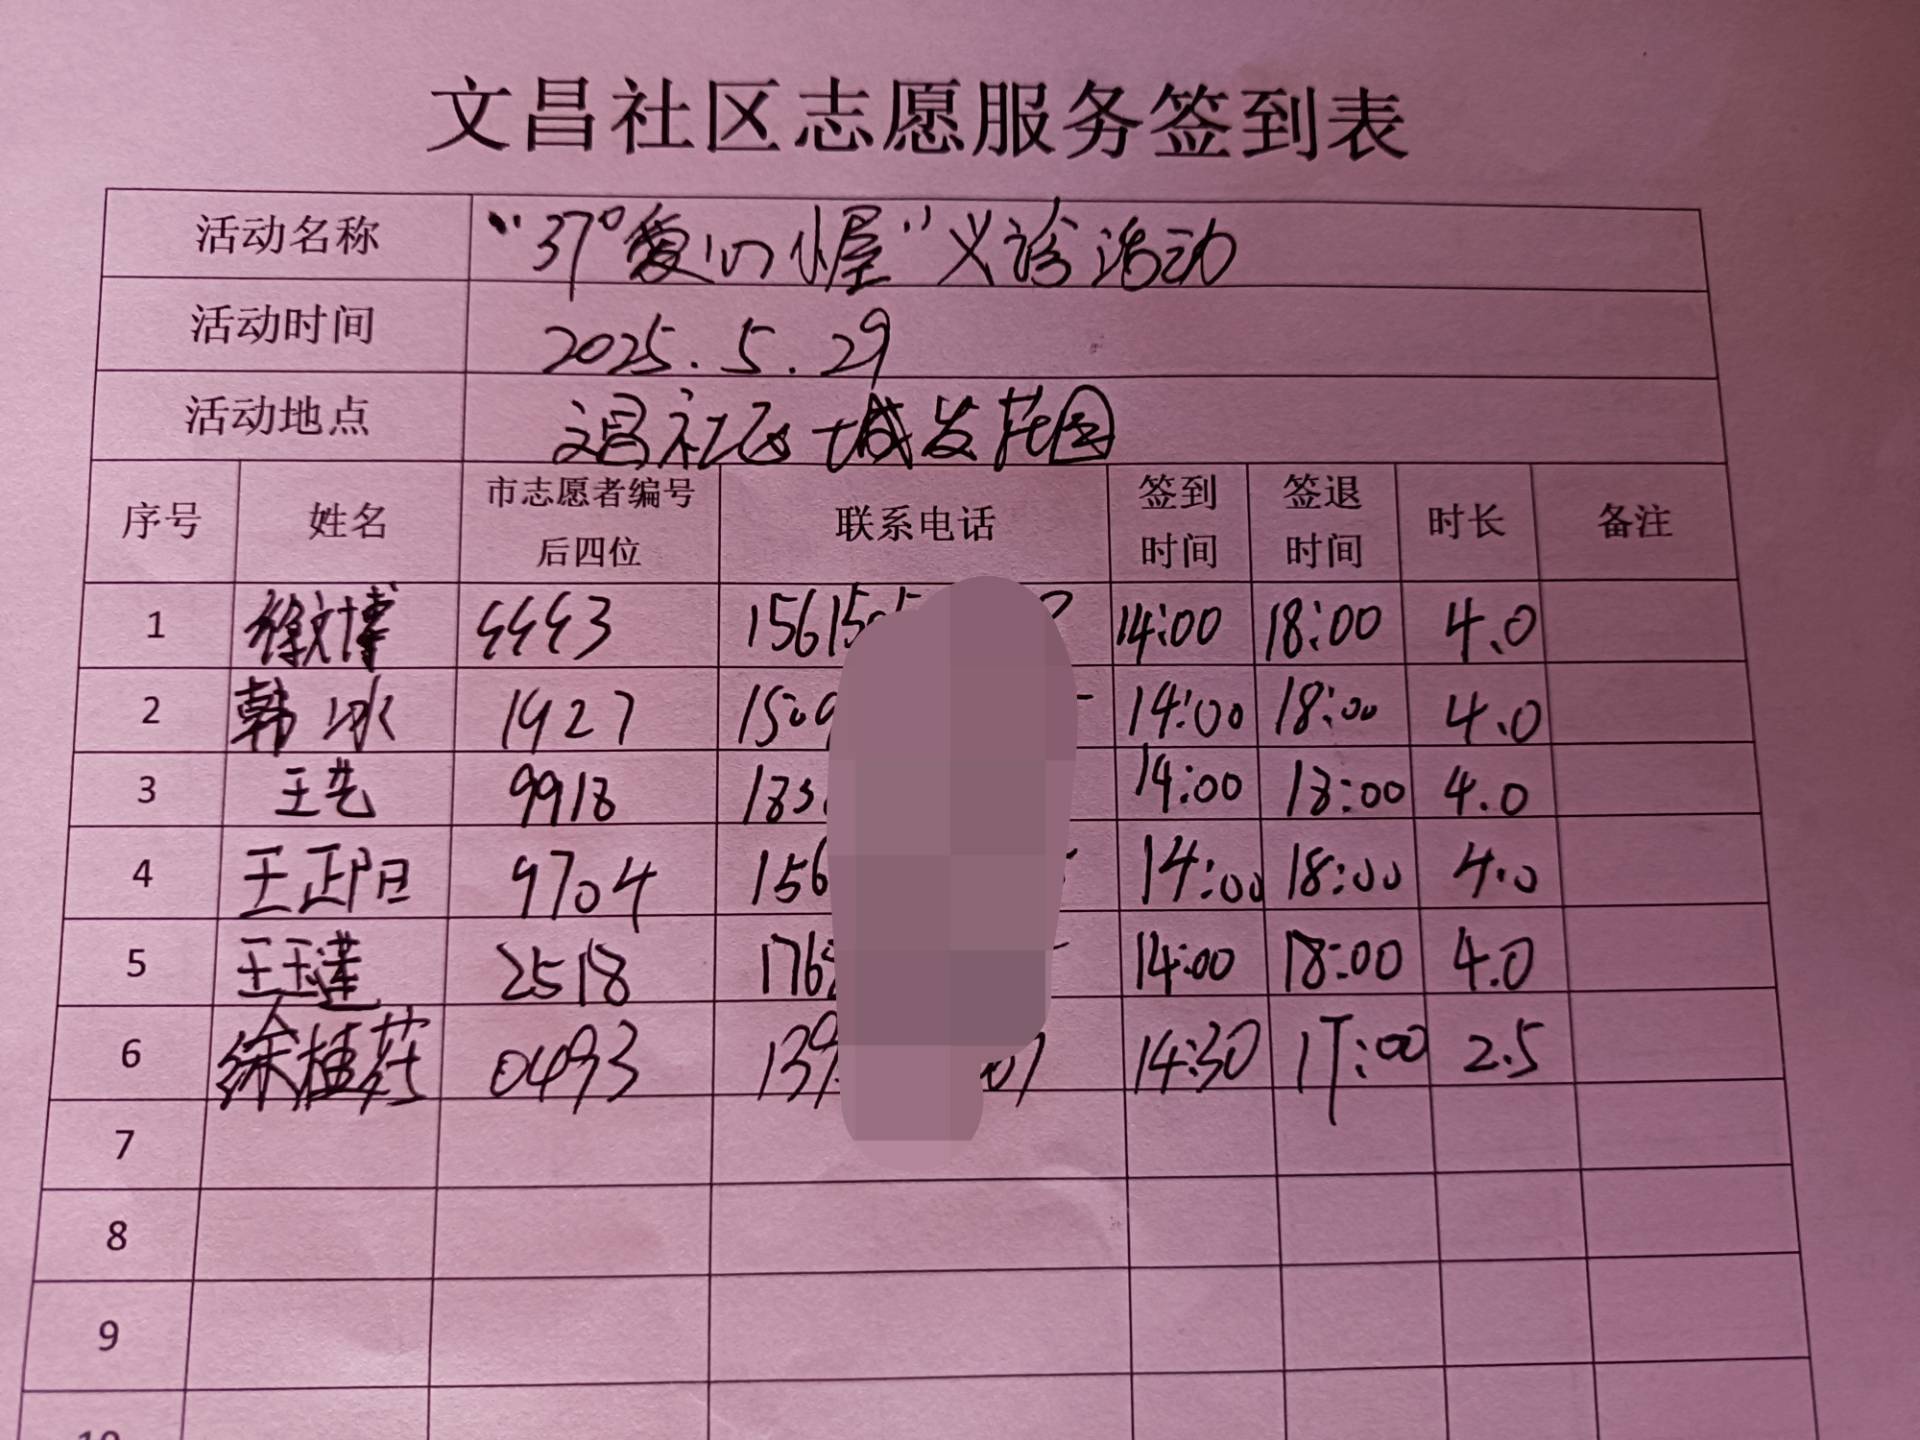 文昌社区志愿服务签到表
活动名称 “37°爱心小屋”义诊活动
活动时间 2025.5.29
活动地点 文昌社区城发花园
序号 姓名 市志愿者编号后四位 联系电话 签到时间 签退时间 时长 备注
1 徐文博 4443 15615 14:00 18:00 4.0
2 韩冰 1427 150 14:00 18:00 4.0
3 王艺 9918 183 14:00 18:00 4.0
4 王正阳 9704 156 14:00 18:00 4.0
5 王玉莲 2518 176 14:00 18:00 4.0
6 徐桂花 0493 139 14:30 17:00 2.5
7
8
9
10